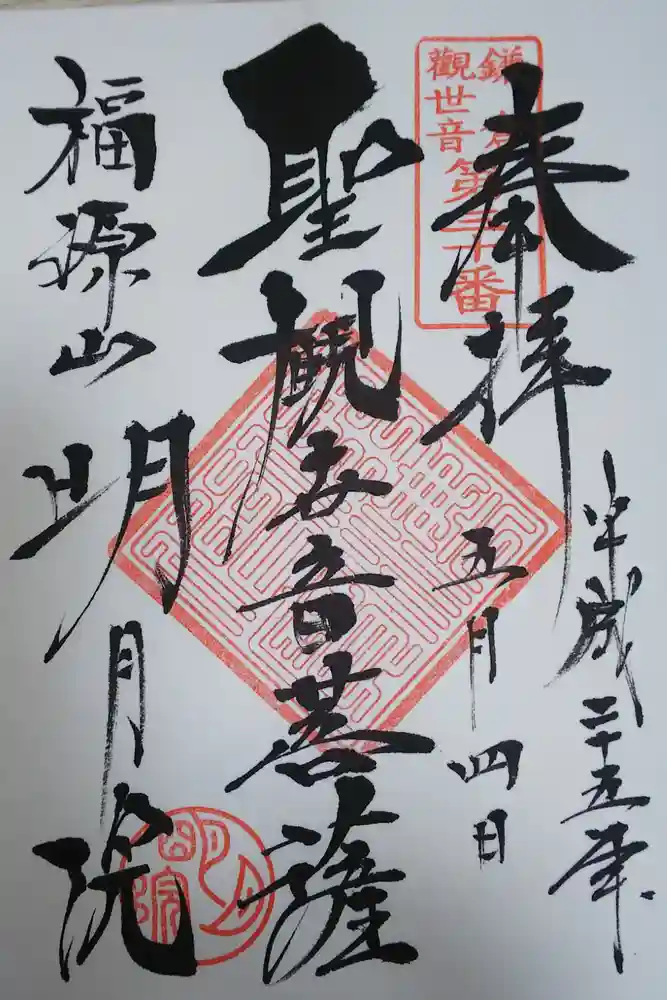 奉拝
平成二十五年
五月四日
鎌倉
觀世音
第三十番
聖観世音菩薩
福源山
明月院